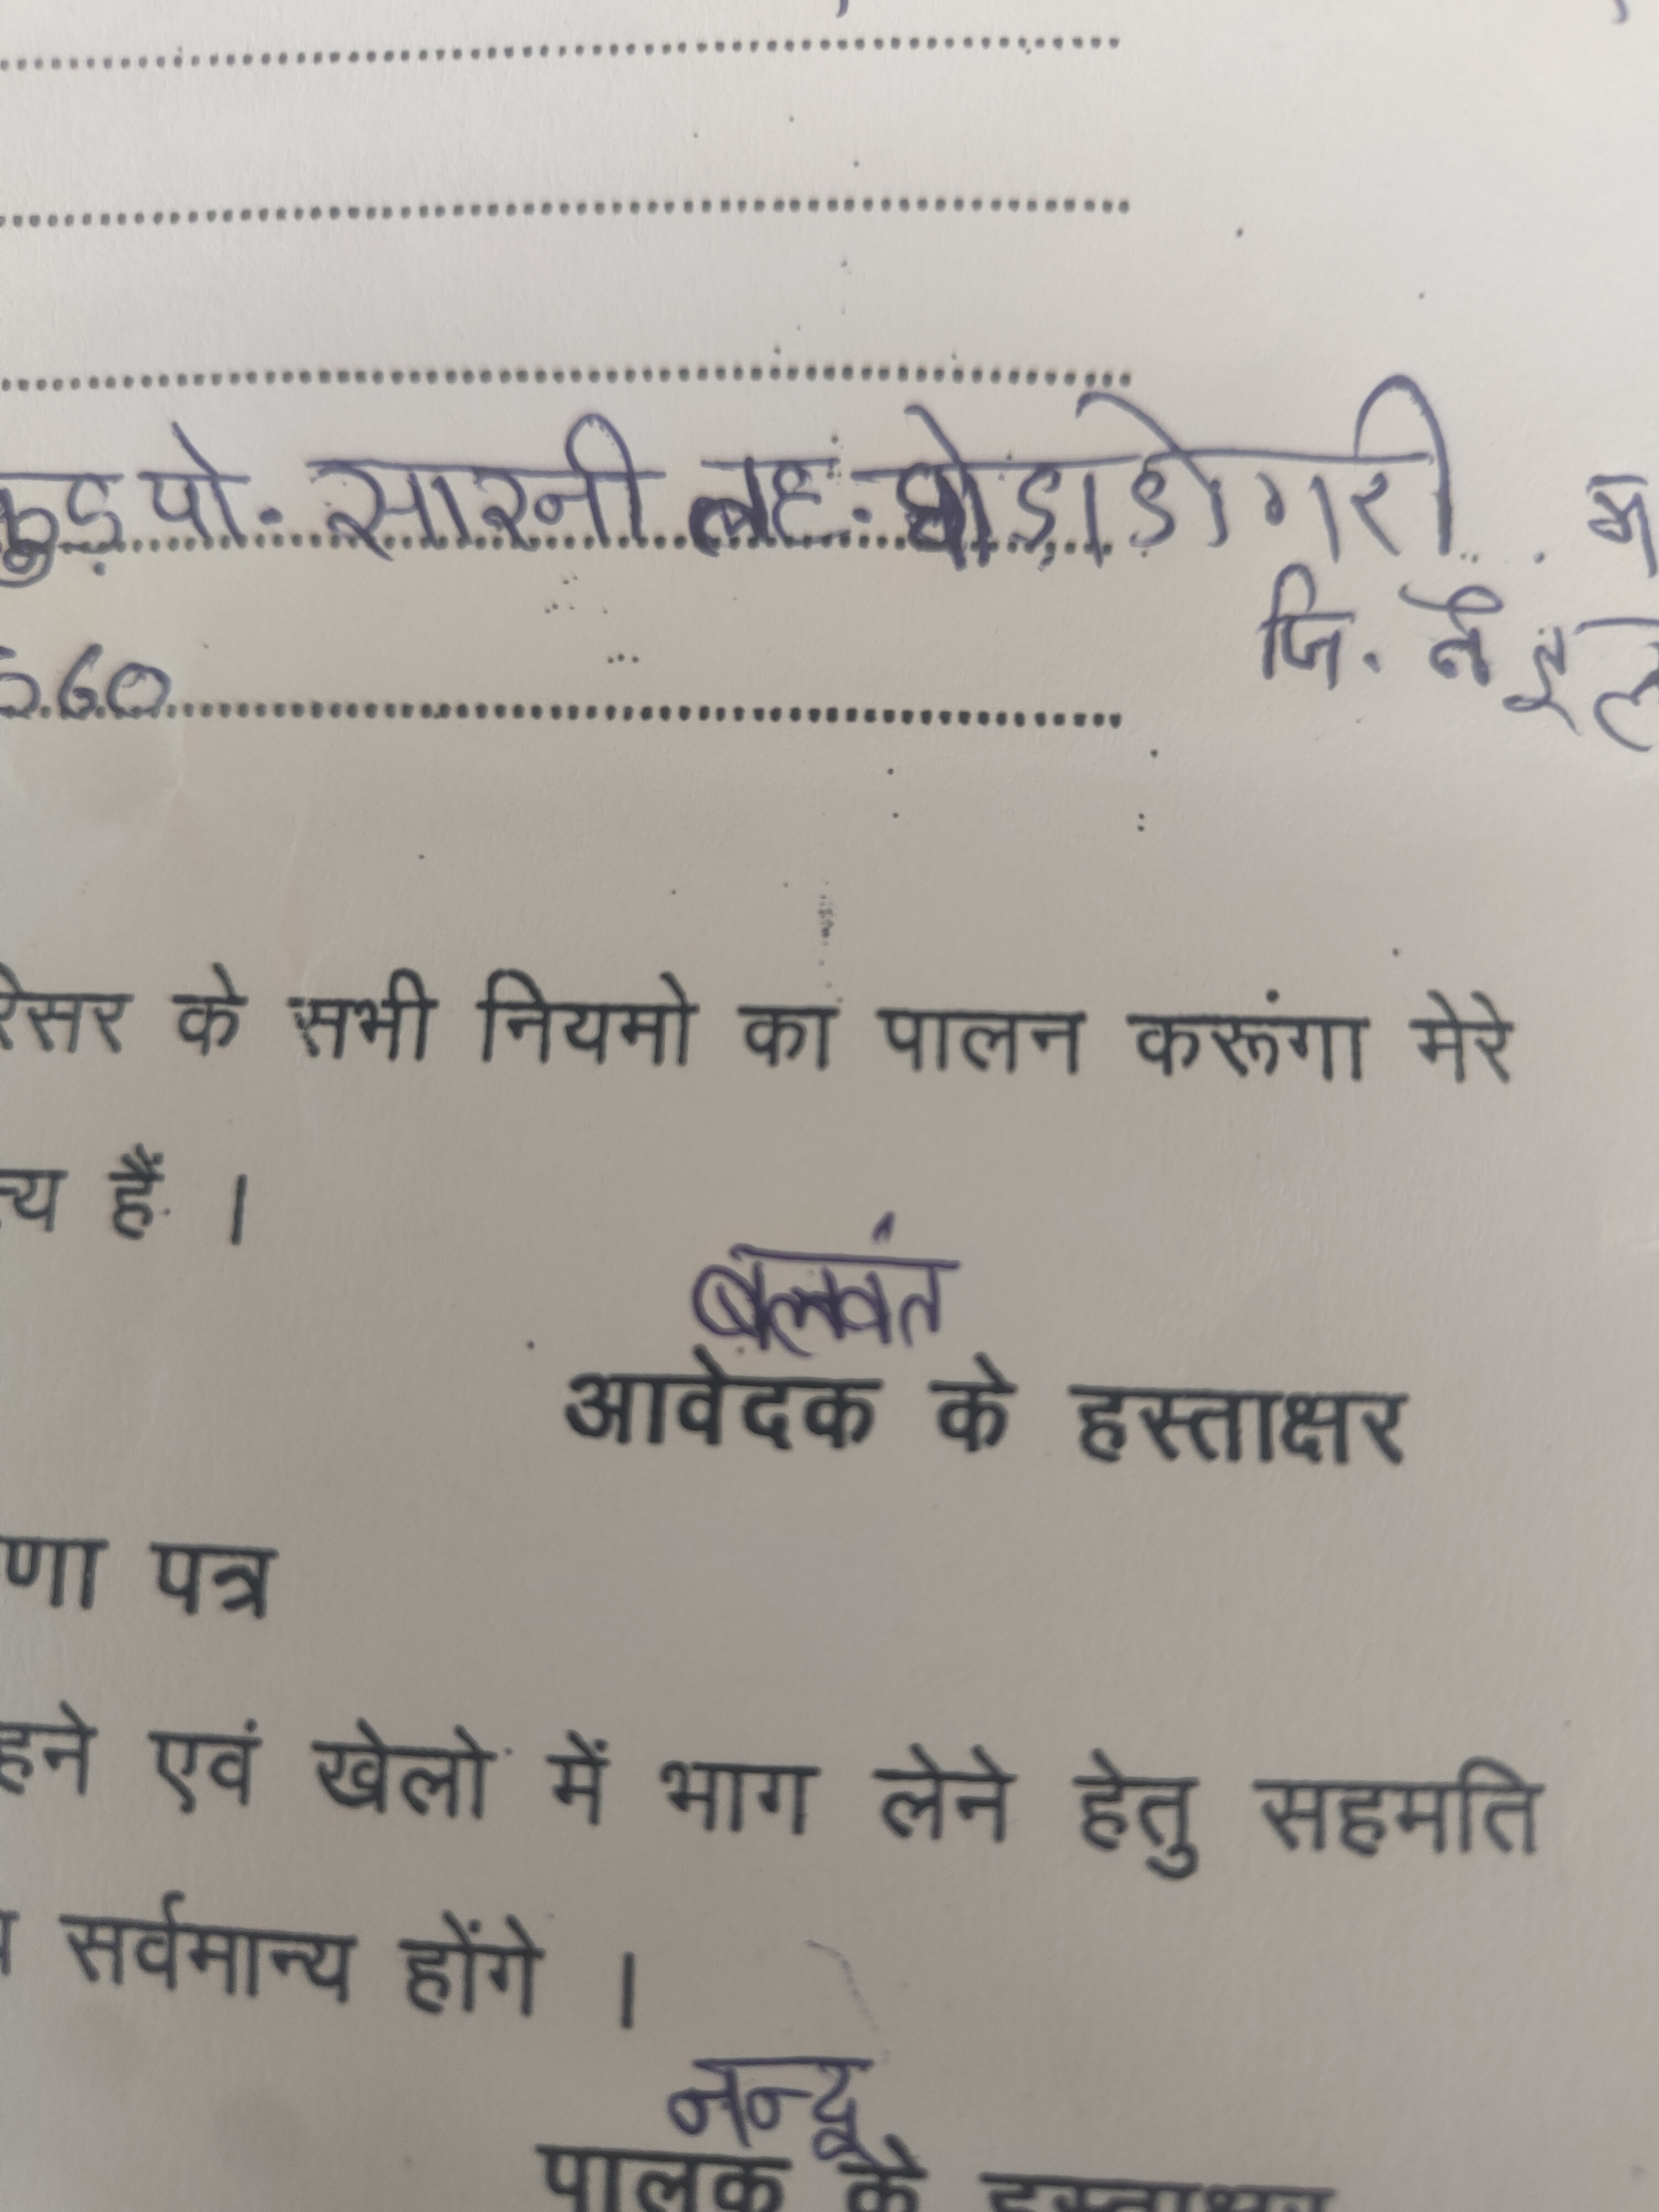 पो. सारनी तह. घोड़ाडोंगरी
जि.
560
के सभी नियमो का पालन करूंगा मेरे
हैं ।
बलवंत
आवेदक के हस्ताक्षर
पत्र
एवं खेलो में भाग लेने हेतु सहमति
सर्वमान्य होंगे ।
नन्दू
पालक के हस्ताक्षर